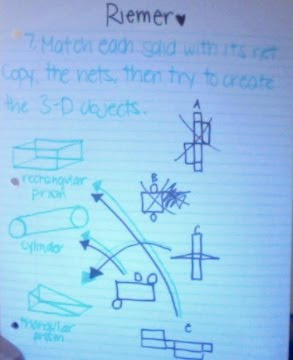 Riemer♥
7. Match each solid with its net
Copy, the nets, then try to create
the 3-D objects.
A
rectangular
prism
B
cylinder
C
D
triangular
prism
E